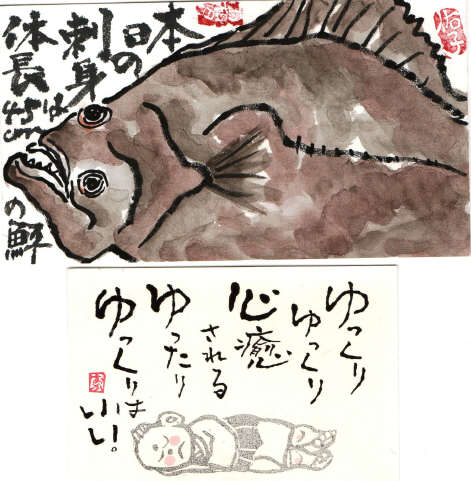 本日の
刺身は
体長
45cm
の鮃
ゆっくり
ゆっくり
心癒
される
ゆったり
ゆっくりは
いい。